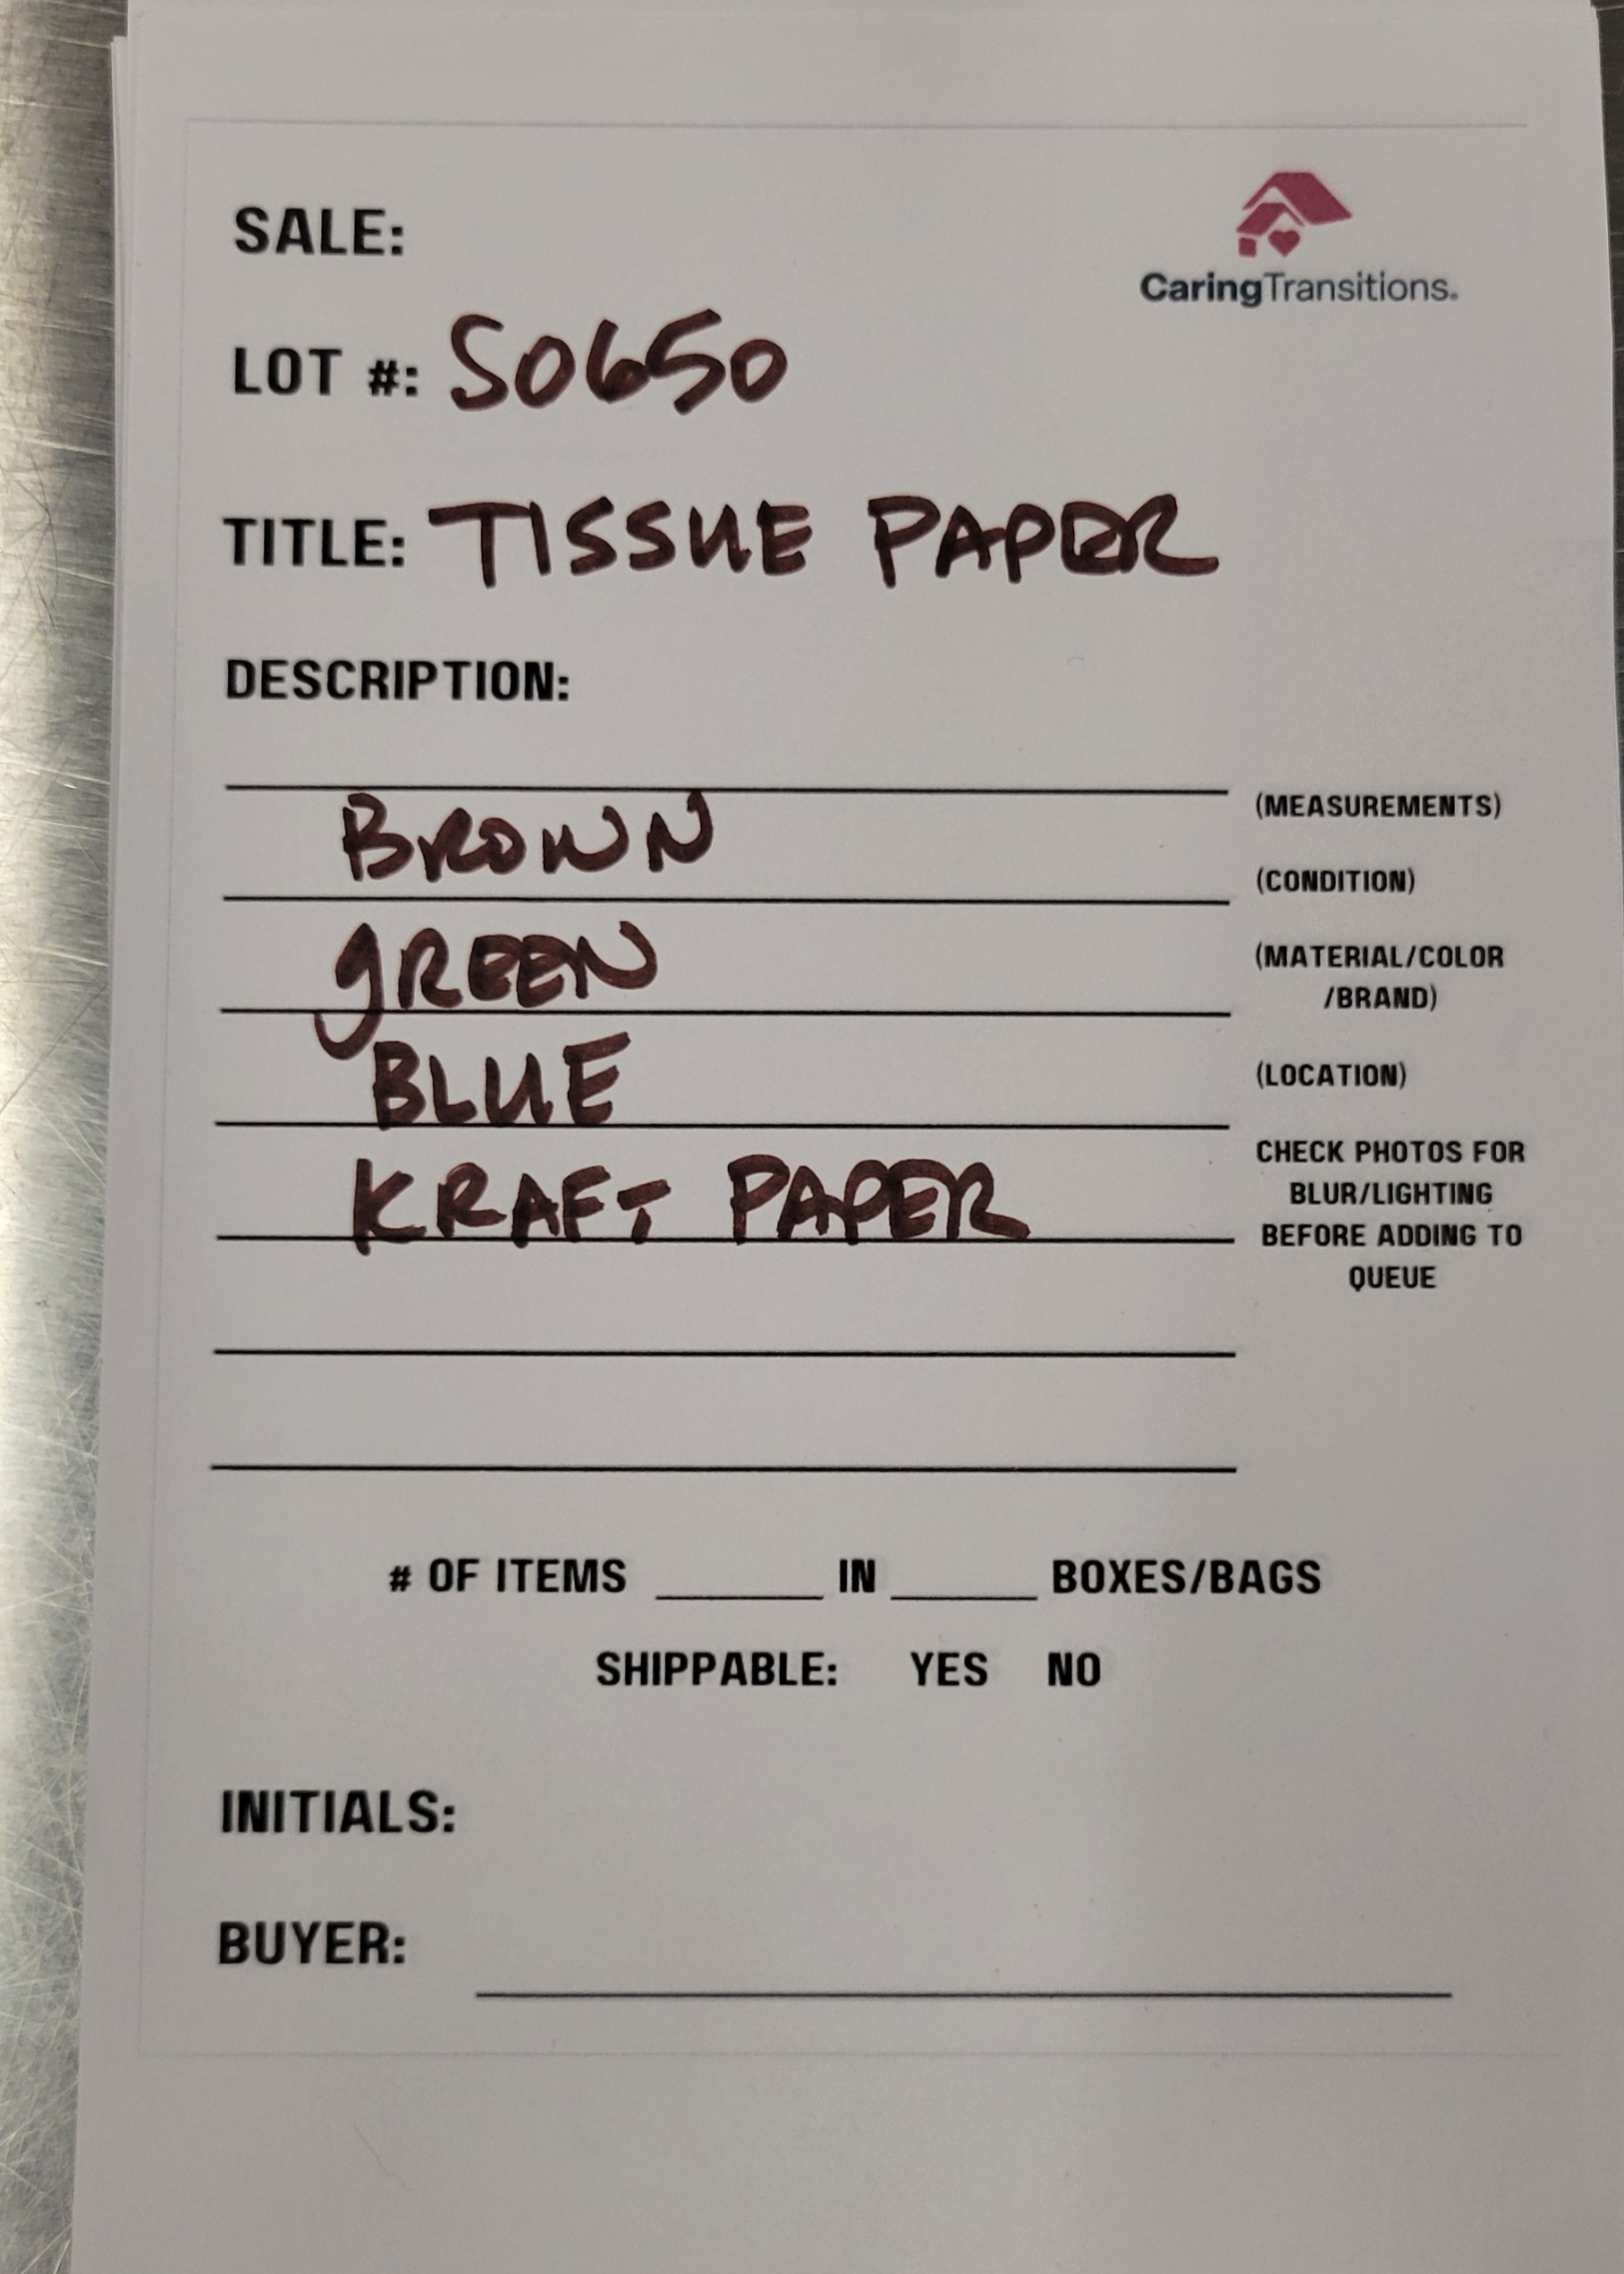 SALE:
CaringTransitions.
LOT #: S0650
TITLE: TISSUE PAPER
DESCRIPTION:
(MEASUREMENTS)
BROWN
(CONDITION)
gREEN
(MATERIAL/COLOR
/BRAND)
BLUE
(LOCATION)
KRAFT PAPER
CHECK PHOTOS FOR
BLUR/LIGHTING
BEFORE ADDING TO
QUEUE
# OF ITEMS ______ IN ______ BOXES/BAGS
SHIPPABLE: YES NO
INITIALS:
BUYER: